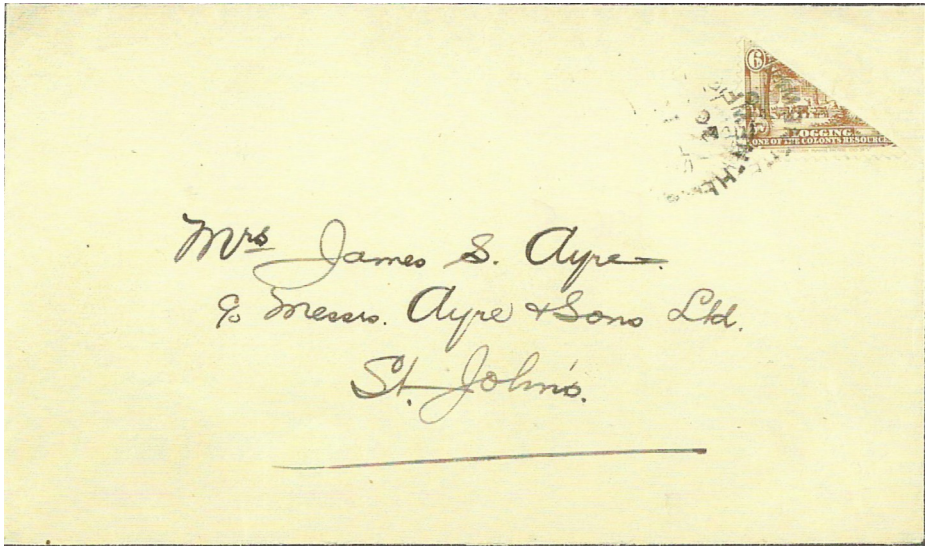 6
LOGGING
ONE OF THE COLONY'S RESOURCE
Mrs James S. Ayre
c/o Messrs. Ayre & Sons Ltd.
St. John's.